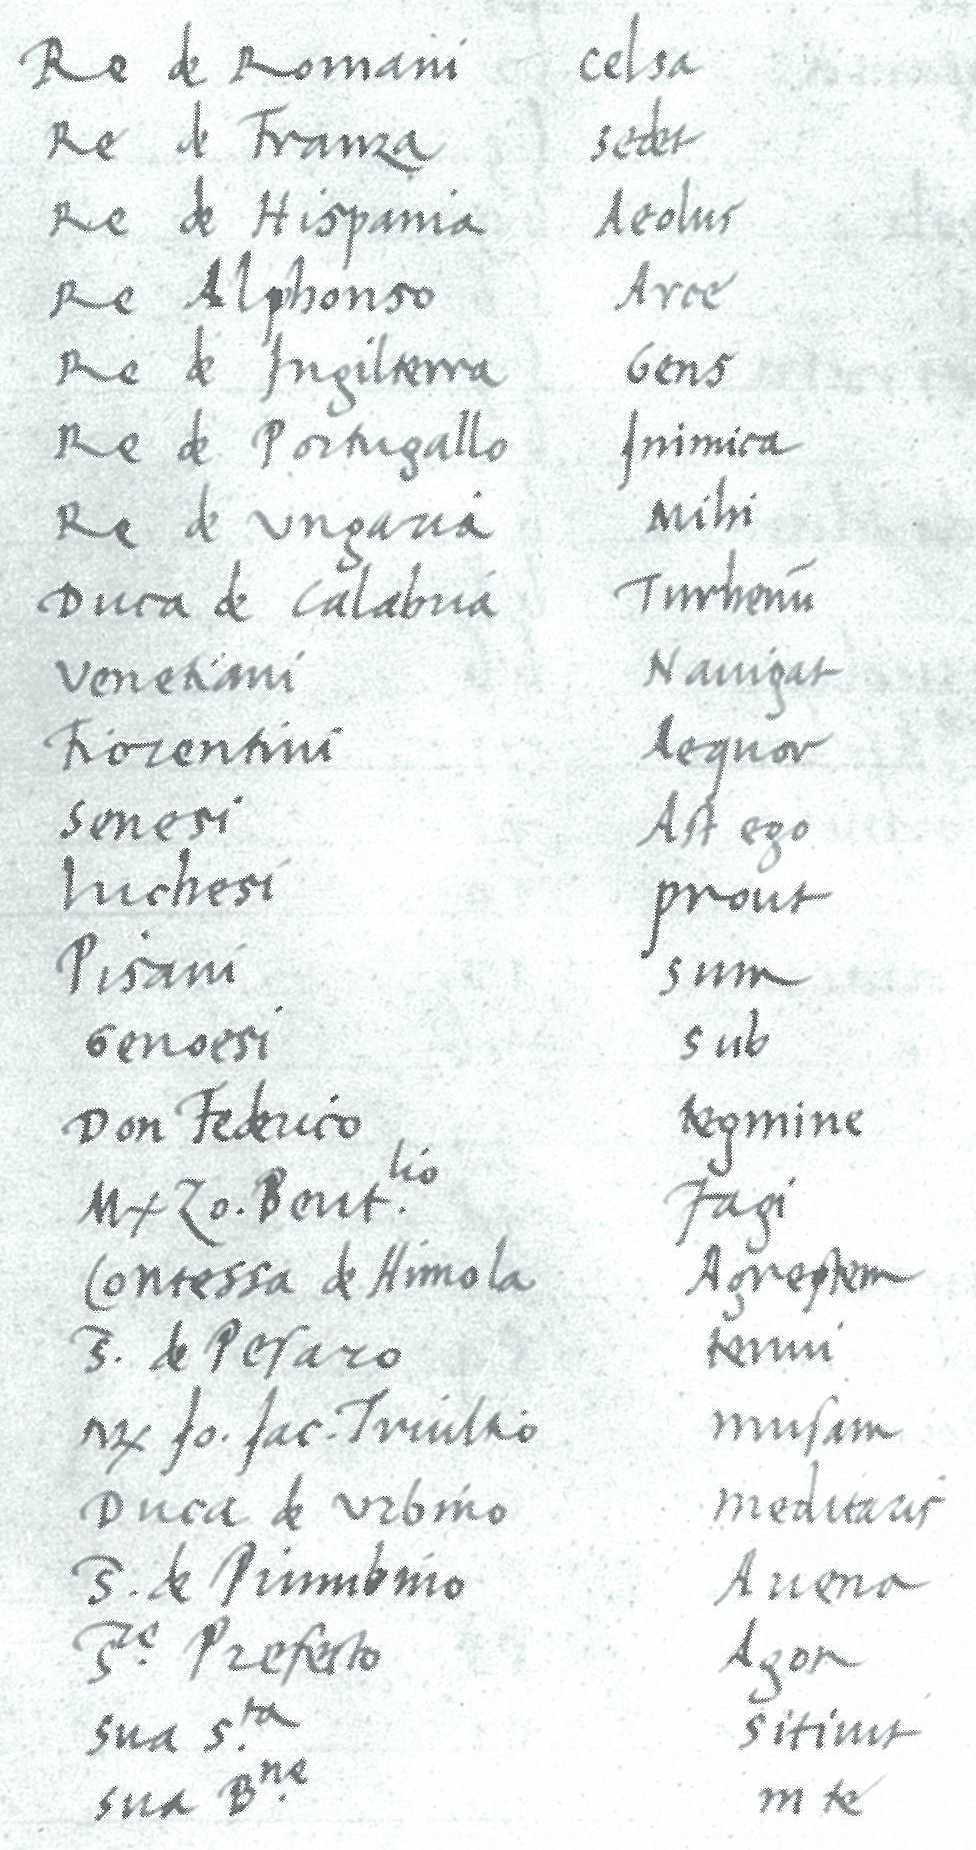 Re de Romani celsa
Re de Franza sedet
Re de Hispania Aeolus
Re Alphonso Arce
Re de Ingilterra Gens
Re de Portugallo Inimica
Re de Ungaria Mihi
Duca de Calabria Turhenū
Venetiani Nauigat
Fiorentini Aequor
Senesi Ast ego
Luchesi prout
Pisani sum
Genoesi sub
Don Federico tegmine
Mx Zo. Bent.lio Fagi
Contessa de Himola Agrestem
S. de Pesaro tenui
Mx Jo. Jac. Triultio musam
Duca de Urbino meditaris
S. de Piumbino Auena
S.re Prefecto Agon
sua S.ta sitiunt
sua B.ne in te